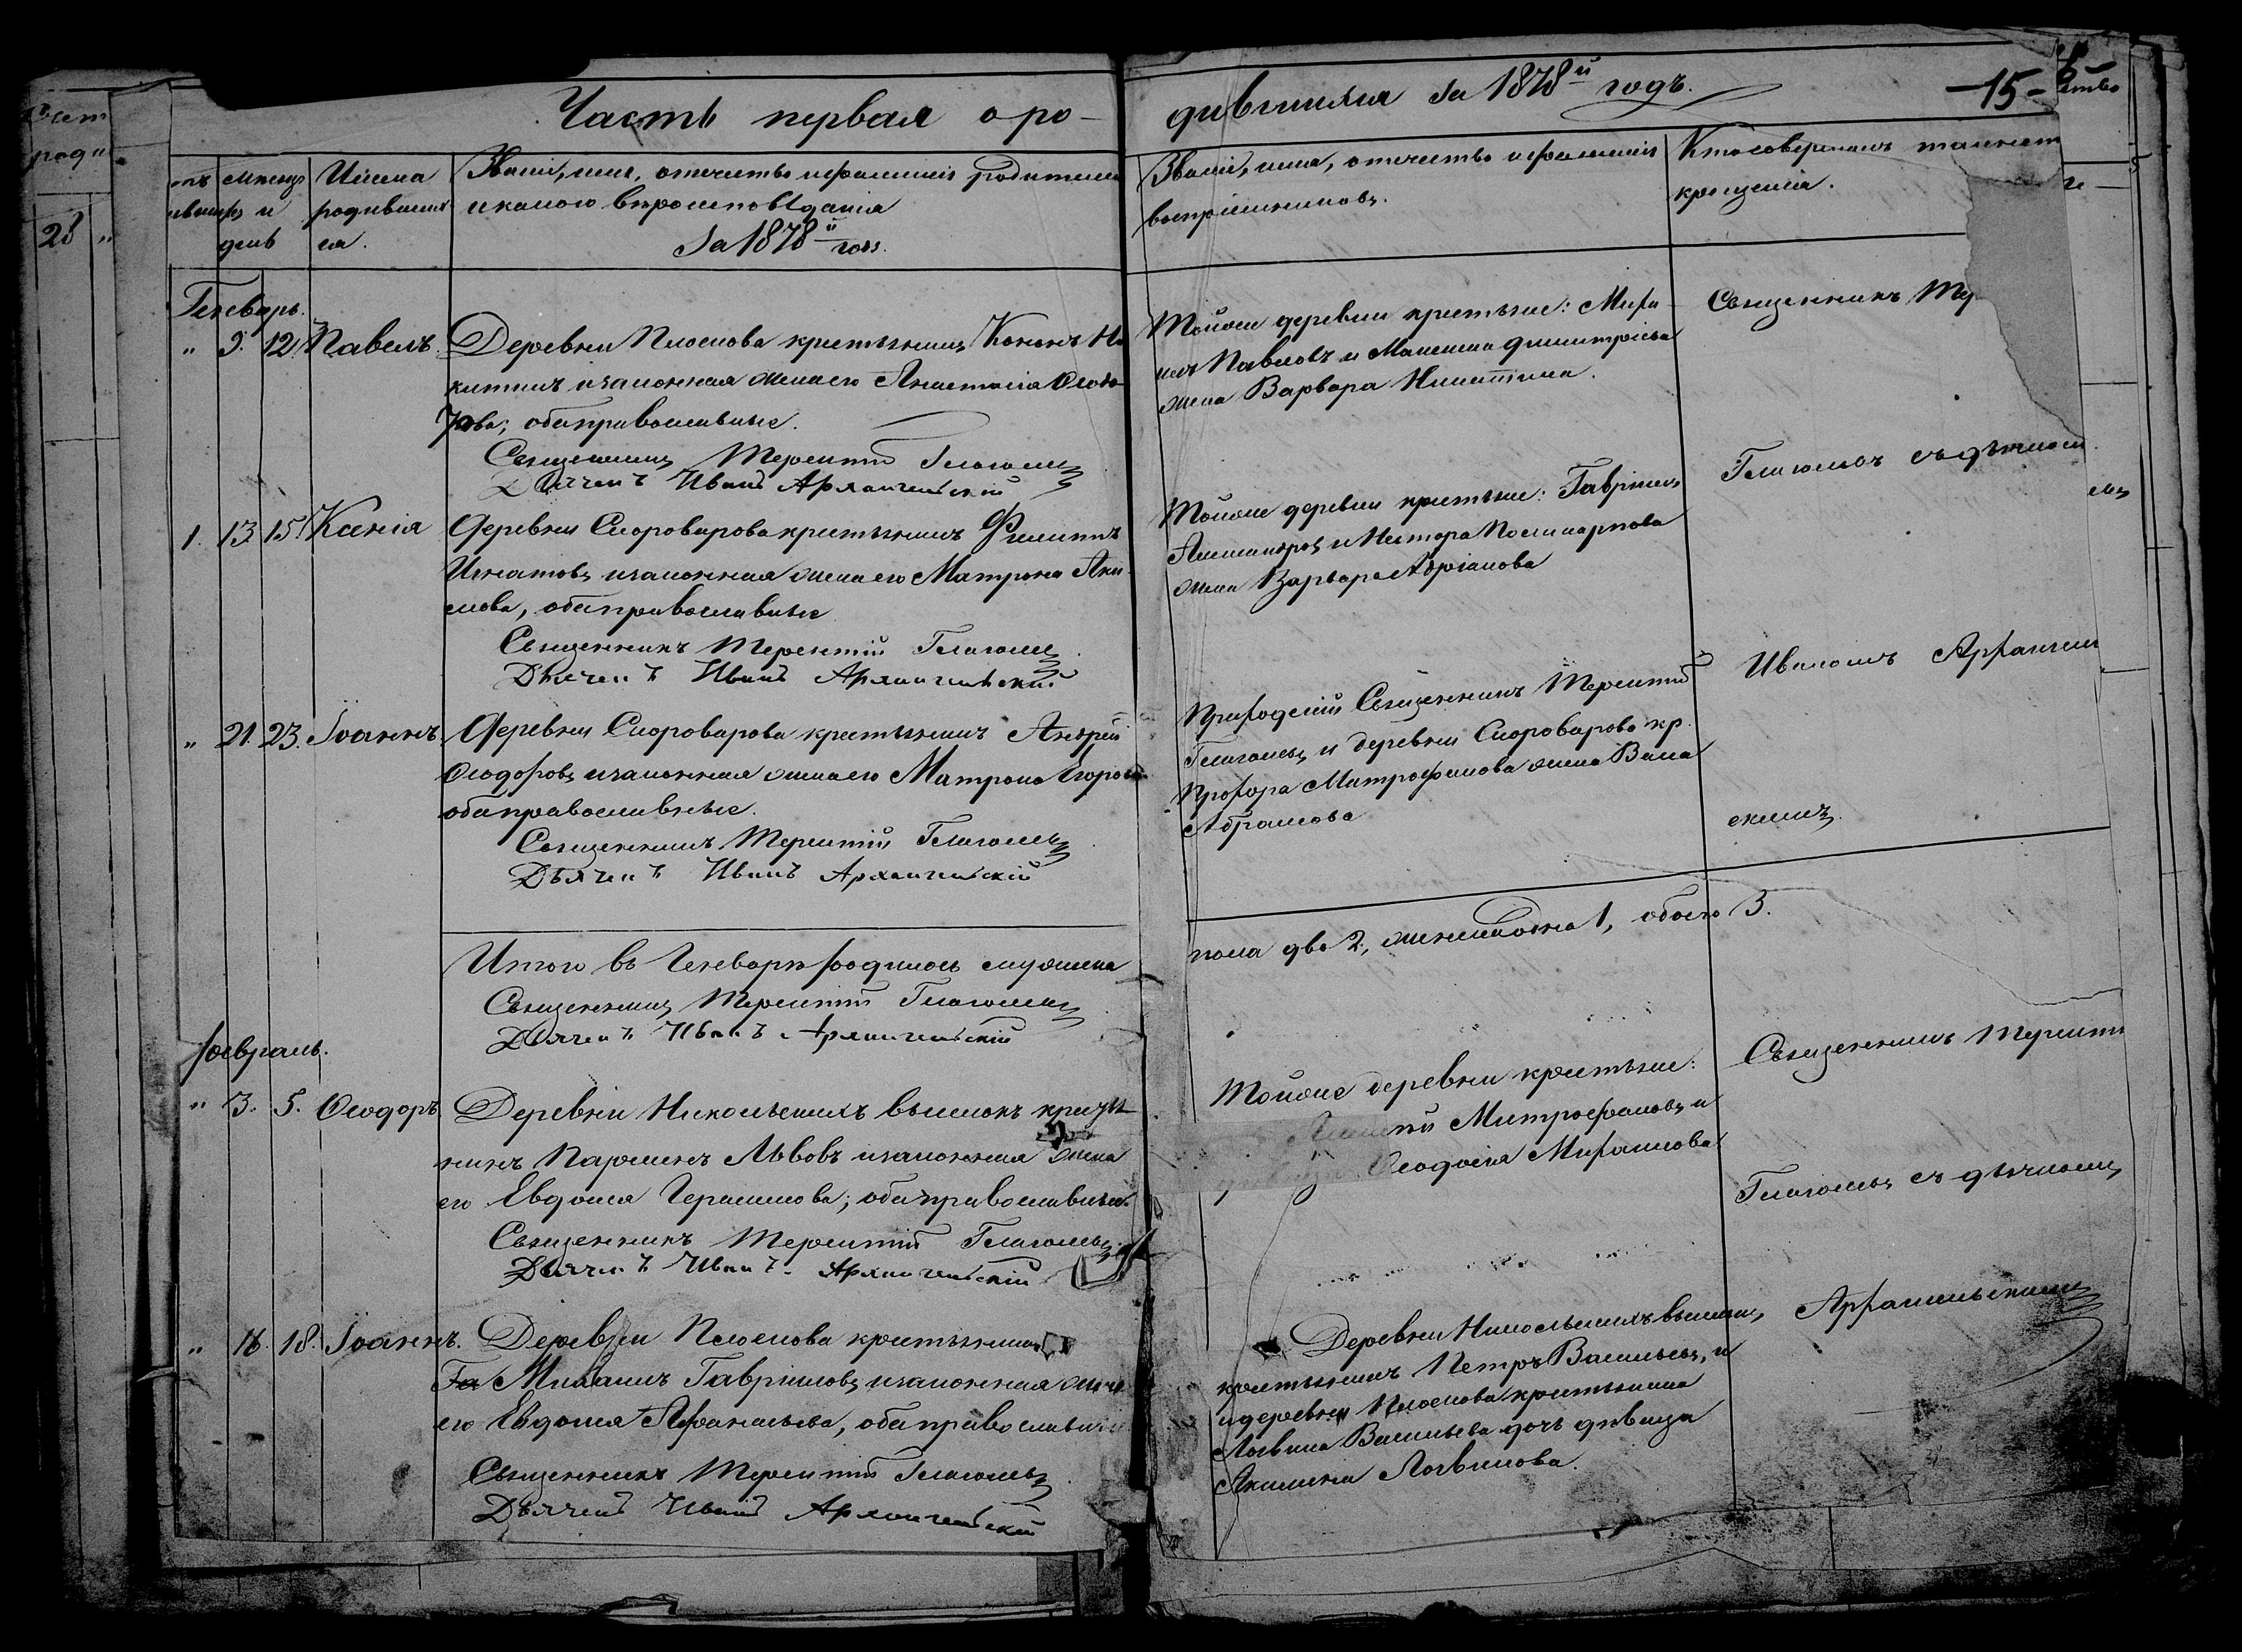 Часть первая о ро-
дившихся за 1878й годъ.
-15-
Имена
родивших
ся.
Мѣсяцъ и
день
Званіе, имя, отчество и фамилія родителей
и какого вѣроисповѣданія
За 1878й годъ.
Званіе, имя, отчество и фамилія
воспріемниковъ.
Кто совершалъ таинств
крещенія.
28 "
Генварь.
" 9. 12. Павелъ.
Деревни Плоскова крестьянинъ Кононъ Ни
китинъ и законная жена его Анастасія Ѳеодо
рова; оба православные.
Священникъ Терентій Глаголевъ
Дьячекъ Иванъ Архангельскій
Тойже деревни крестьяне:
Павловъ и Дмитріева
жена Варвара Никитина.
Священникъ Тер
1. 13. 15. Ксенія
Деревни Скороварова крестьянинъ Филиппъ
Игнатовъ и законная жена его Матрона Аки
мова, оба православные
Священникъ Терентій Глаголевъ
Дьячекъ Иванъ Архангельскій
Тойже деревни крестьяне: Гавріилъ
Александровъ и Нестора Поликарпова
жена Варвара Адріанова
Глаголевъ съ дьячкомъ
" 21. 23. Іоаннъ.
Деревни Скороварова крестьянинъ Андрей
Ѳеодоровъ и законная жена его Матрона Егорова
оба православные.
Священникъ Терентій Глаголевъ
Дьячекъ Иванъ Архангельскій
Приходскій Священникъ Терентій
Глаголевъ и деревни Скороварова кр.
Прохора Митрофанова жена Васса
Абрамова
Иваномъ Архангель
скимъ.
Итого въ Генварѣ родилось мужеска
пола два 2, женска одна 1, обоего 3.
Священникъ Терентій Глаголевъ
Дьячекъ Иванъ Архангельскій
Февраль.
" 3. 5. Ѳеодоръ
Деревни Никольскихъ выселокъ крестья
нинъ Парменъ Львовъ и законная жена
его Евдокія Герасимова; оба православные.
Священникъ Терентій Глаголевъ
Дьячекъ Иванъ Архангельскій
Тойже деревни крестьяне:
Митрофановъ и
Ѳеодосія
Священникъ Терентій
Глаголевъ съ дьячкомъ
" 16. 18. Іоаннъ.
Деревни Плоскова крестьянинъ
Га Михаилъ Гавріиловъ и законная жена
его Евдокія Афанасьева, оба православные
Священникъ Терентій Глаголевъ
Дьячекъ Иванъ Архангельскій
Деревни Никольскихъ выселокъ,
крестьянинъ Петръ Васильевъ, и
и деревни Плоскова крестьянина
Логвина Васильева дочь дѣвица
Акилина Логвинова.
Архангельскимъ